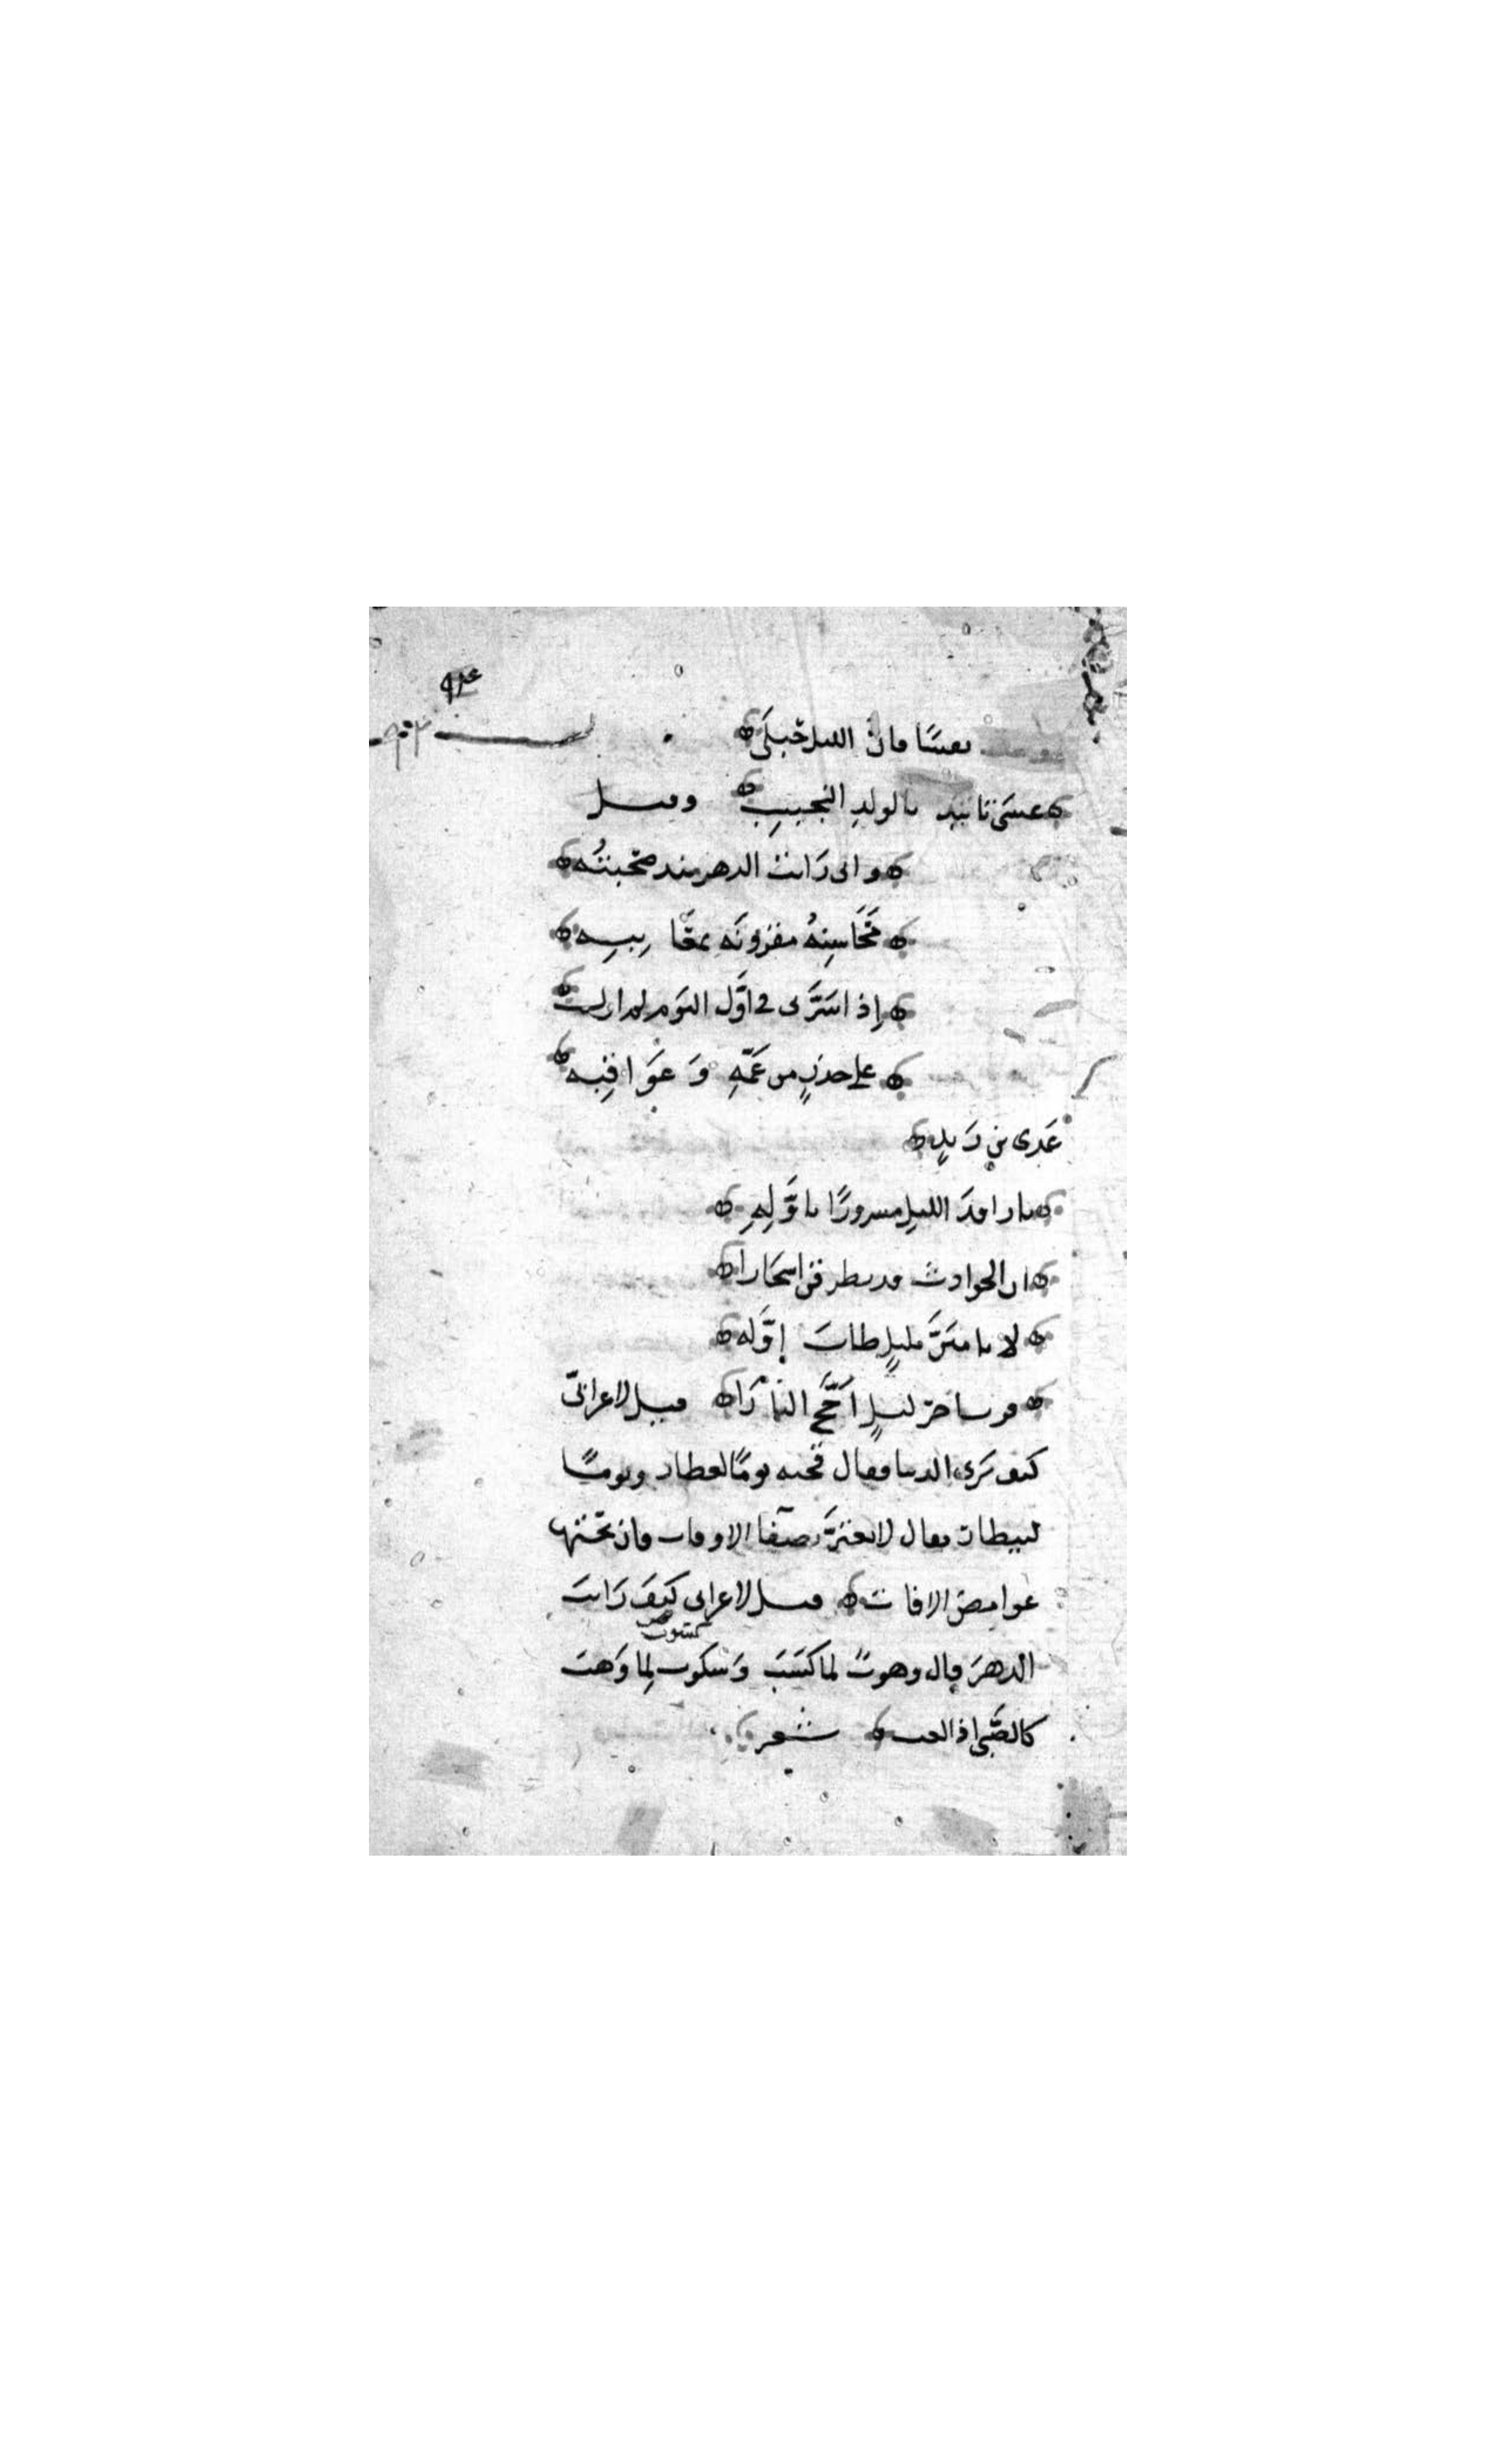 نفسًا فان الليل حُبلَى
عسَى تاتيك بالولدِ النجيبِ وقيل
واني رَايت الدهر منذ صَحِبتُه
مَحَاسِنهُ مقرونَه بمعَايبِه
إذا سَرَّني في اوَّل اليَوم لم ازل
على حذرٍ من غَمّهِ وَعَوَاقِبه
عَدى بن زَيدٍ
يا راقدَ الليلِ مسرورًا باوَّلِهِ
ان الحوادث قد يطرقن اسحَارا
لا تامنَنَّ بليلٍ طابَ اوَّله
فرب اخر ليلٍ اجَّجَ النارَا قيل لاعرابيّ
كيف تَرى الدنيا فقال قحبه يومًا لعطار ويومًا
لبيطار فقال لا تغترَّ بصفَا الاوقات فان تحتها
غوامض الافات قيل لاعرابي كيفَ رَايتَ
الدهرَ قال وهوبٌ لما كسَبَ وَسَلوب لِما وَهبَ
كالصَّبي اذا لعب شعر